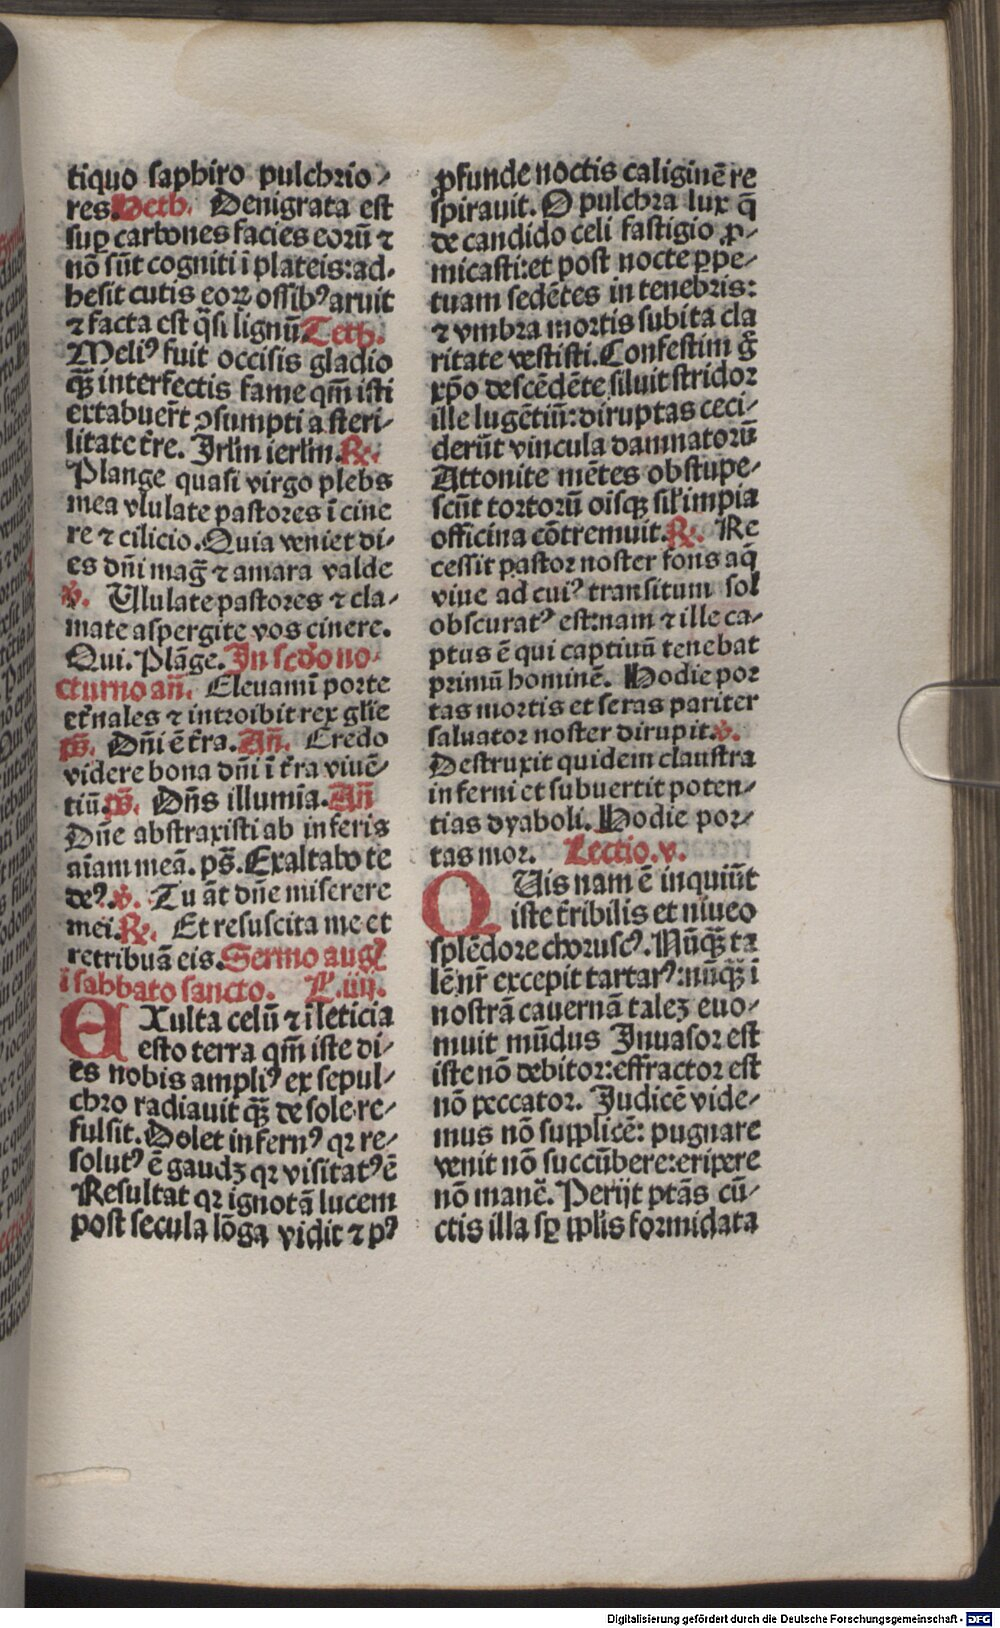 tiquo saphiro pulchrio⸗
res. Heth. Denigrata est
suꝑ carbones facies eorū ⁊
nō sūt cogniti ī plateis: ad⸗
hesit cutis eoꝝ ossibꝰ aruit
⁊ facta est q̄si lignū Teth.
Meliꝰ fuit occisis gladio
qꝫ interfectis fame qm̄ isti
extabuer̄t ꝯsumpti a steri⸗
litate t̄re. Jrlm̄ ierlm̄. ℞.
Plange quasi virgo plebs
mea vlulate pastores ī cine
re ⁊ cilicio. Quia veniet di⸗
es dn̄i maḡ ⁊ amara valde
℣. Ululate pastores ⁊ cla⸗
mate aspergite vos cinere.
Qui. Plāge. In scdo no⸗
cturno an̄. Eleuamī porte
et̄nales ⁊ introibit rex gl̄ie
ps̄. Dn̄i ē t̄ra. An̄. Credo
videre bona dn̄i ī t̄ra viuē⸗
tiū. ps̄. Dn̄s illumīa. An̄
Dn̄e abstraxisti ab inferis
aīam meā. ps̄. Exaltabo te
deꝰ. ℣. Tu āt dn̄e miserere
mei. ℞. Et resuscita me et
retribuā eis. Sermo augꝰ
ī sabbato sancto. L. iiij.
EXulta celū ⁊ ī leticia
esto terra qm̄ iste di⸗
es nobis ampliꝰ ex sepul⸗
chro radiauit qꝫ de sole re⸗
fulsit. Dolet infernꝰ qꝛ re⸗
solutꝰ ē gaudꝫ qꝛ visitatꝰ ē
Resultat qꝛ ignotā lucem
post secula lōga vidit ⁊ pꝰ
ꝓfunde noctis caliginē re
spirauit. O pulchra lux q̄
de candido celi fastigio ꝓ⸗
micasti: et post nocte ꝑpe⸗
tuam sedētes in tenebris:
⁊ vmbra mortis subita cla
ritate vestisti. Confestim g̊
xp̄o descēdēte siluit stridor
ille lugētiū: diruptas ceci⸗
derūt vincula damnatorū
Attonite mētes obstupe⸗
scūt tortorū oīsqꝫ sil̄ impia
officina cōtremuit. ℞. Re
cessit pastor noster fons aq̄
viue ad cuiꝰ transitum sol
obscuratꝰ est: nam ⁊ ille ca⸗
ptus ē qui captiuū tenebat
primū hominē. Hodie por
tas mortis et seras pariter
saluator noster dirupit. ℣.
Destruxit quidem claustra
inferni et subuertit poten⸗
tias dyaboli. Hodie por⸗
tas mor. Lectio. v.
QUis nam ē inquiūt
iste t̄ribilis et niueo
splēdore choruscꝰ. Nūqꝫ ta
lē nr̄ excepit tartarꝰ: nūqꝫ ī
nostrā cauernā taleꝫ euo⸗
muit mūdus Inuasor est
iste nō debitor: effractor est
nō peccator. Judicē vide⸗
mus nō supplicē: pugnare
venit nō succūbere: eripere
nō manē. Perijt ptās cū⸗
ctis illa sꝑ ꝑplis formidata
Digitalisierung gefördert durch die Deutsche Forschungsgemeinschaft - DFG